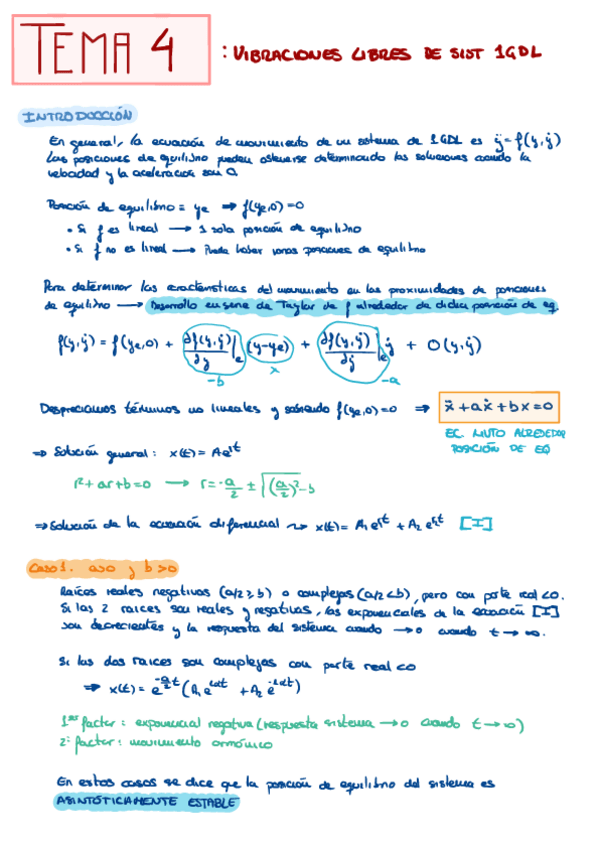 TEMA 4 : VIBRACIONES LIBRES DE SIST 1GDL
INTRODUCCIÓN
En general, la ecuación de movimiento de un sistema de 1GDL es ÿ = f(y,ẏ)
Las posiciones de equilibrio pueden obtenerse determinando las soluciones cuando la
velocidad y la aceleración son 0.
Posición de equilibrio = ye ⇒ f(ye,0)=0
• Si f es lineal → 1 sola posición de equilibrio
• Si f no es lineal → Puede haber varias posiciones de equilibrio
Para determinar las características del movimiento en las proximidades de posiciones
de equilibrio → Desarrollo en serie de Taylor de f alrededor de dicha posición de eq.
f(y,ẏ) = f(ye,0) + ∂f(y,ẏ)/∂y|e (y-ye) + ∂f(y,ẏ)/∂ẏ|e ẏ + O(y,ẏ)
-b x -a
Despreciamos términos no lineales y sabiendo f(ye,0)=0 ⇒ ẍ+aẋ+bx=0
EC. MVTO ALREDEDOR
POSICIÓN DE EQ
⇒ Solución general: x(t) = Ae^rt
r²+ar+b=0 → r=-a/2 ± √((a/2)²-b)
⇒ Solución de la ecuación diferencial ⇝ x(t)= A₁e^r₁t + A₂e^r₂t [I]
Caso 1. a>0 y b>0
Raíces reales negativas (a/2≥b) o complejas (a/2<b), pero con parte real <0.
Si las 2 raíces son reales y negativas, las exponenciales de la ecuación [I]
son decrecientes y la respuesta del sistema cuando →0 cuando t→∞.
Si las dos raíces son complejas con parte real <0
⇒ x(t) = e^-a/2 t (A₁e^iωt + A₂e^-iωt)
1er factor: exponencial negativa (respuesta sistema →0 cuando t→∞)
2º factor: movimiento armónico
En estos casos se dice que la posición de equilibrio del sistema es
ASINTÓTICAMENTE ESTABLE